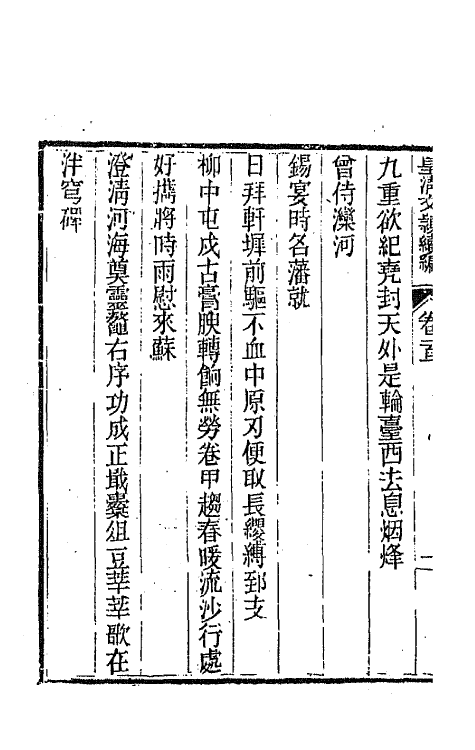 皇清文穎續編
卷百
二
九重欲紀堯封天外是輪臺西去息烟烽
曾侍灤河
錫宴時名藩就
日拜軒墀前驅不血中原刃便取長纓縛郅支
柳中屯戍古膏腴轉餉無勞卷甲趨春暖流沙行處
好攜將時雨慰來蘇
澄清河海奠靈鼇右序功成正戢櫜俎豆莘莘歌在
泮穹碑